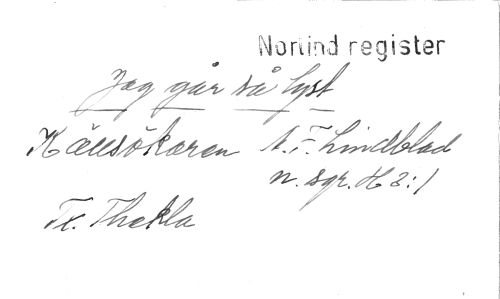 Norlind register
Jag går så tyst
Källsökaren A. F. Lindblad
n. sgr. H 2:1
Tr. Thekla